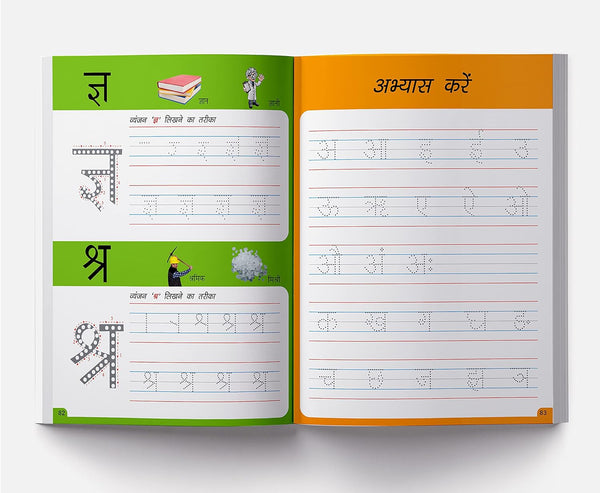 ज्ञ
ज्ञान
ज्ञानी
व्यंजन 'ज्ञ' लिखने का तरीका
ज्ञ
ज्ञ ज्ञ
ज्ञ ज्ञ ज्ञ ज्ञ
श्र
श्रमिक
मिश्री
व्यंजन 'श्र' लिखने का तरीका
श्र
श्र श्र
श्र श्र श्र श्र
82
अभ्यास करें
अ आ इ ई उ
ऊ ऋ ए ऐ ओ
औ अं अः
क ख ग घ ङ
च छ ज झ ञ
83